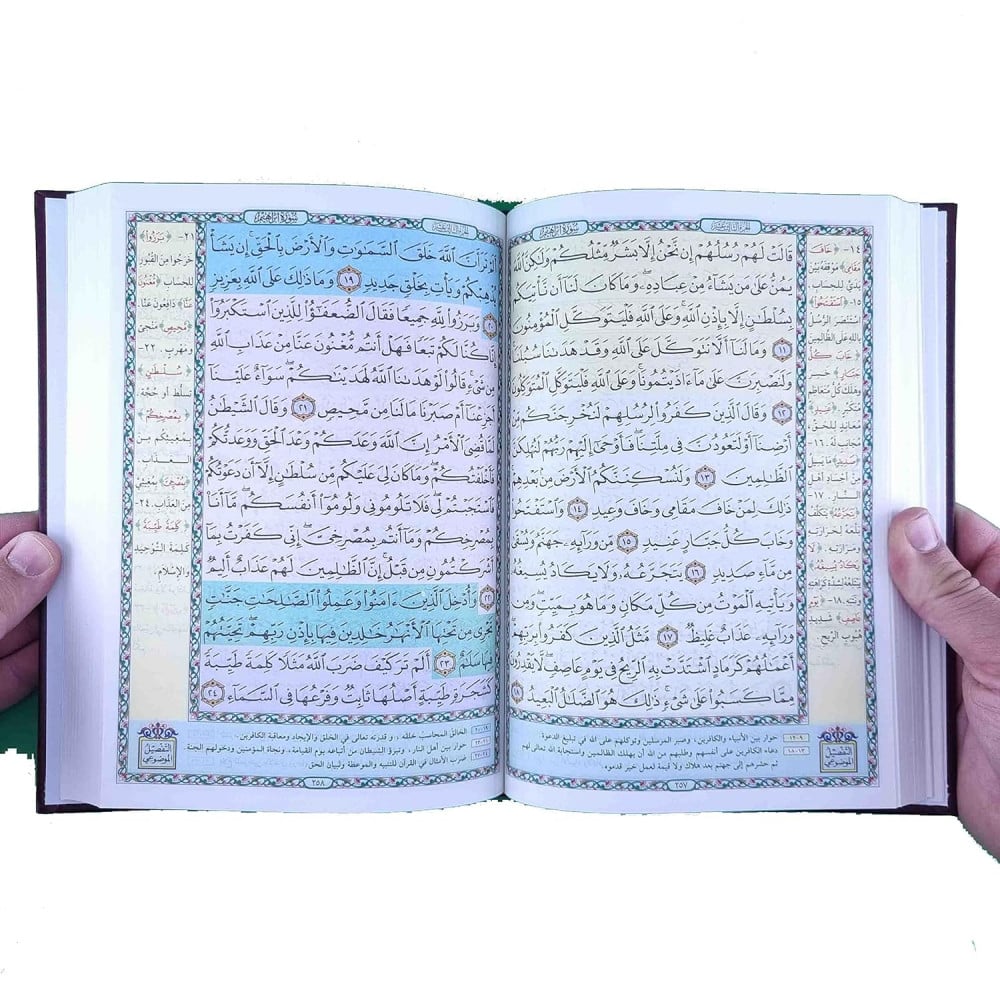 سُورَةُ إِبْرَاهِيمَ
قَالَتْ لَهُمْ رُسُلُهُمْ إِن نَّحْنُ إِلَّا بَشَرٌ مِّثْلُكُمْ وَلَٰكِنَّ ٱللَّهَ
يَمُنُّ عَلَىٰ مَن يَشَآءُ مِنْ عِبَادِهِۦ ۖ وَمَا كَانَ لَنَآ أَن نَّأْتِيَكُم
بِسُلْطَٰنٍ إِلَّا بِإِذْنِ ٱللَّهِ ۚ وَعَلَى ٱللَّهِ فَلْيَتَوَكَّلِ ٱلْمُؤْمِنُونَ
١١ وَمَا لَنَآ أَلَّا نَتَوَكَّلَ عَلَى ٱللَّهِ وَقَدْ هَدَىٰنَا سُبُلَنَا ۚ
وَلَنَصْبِرَنَّ عَلَىٰ مَآ ءَاذَيْتُمُونَا ۚ وَعَلَى ٱللَّهِ فَلْيَتَوَكَّلِ ٱلْمُتَوَكِّلُونَ
١٢ وَقَالَ ٱلَّذِينَ كَفَرُوا۟ لِرُسُلِهِمْ لَنُخْرِجَنَّكُم مِّنْ
أَرْضِنَآ أَوْ لَتَعُودُنَّ فِى مِلَّتِنَا ۖ فَأَوْحَىٰٓ إِلَيْهِمْ رَبُّهُمْ لَنُهْلِكَنَّ
ٱلظَّٰلِمِينَ ١٣ وَلَنُسْكِنَنَّكُمُ ٱلْأَرْضَ مِنۢ بَعْدِهِمْ ۚ
ذَٰلِكَ لِمَنْ خَافَ مَقَامِى وَخَافَ وَعِيدِ ١٤ وَٱسْتَفْتَحُوا۟
وَخَابَ كُلُّ جَبَّارٍ عَنِيدٍ ١٥ مِّن وَرَآئِهِۦ جَهَنَّمُ وَيُسْقَىٰ
مِن مَّآءٍ صَدِيدٍ ١٦ يَتَجَرَّعُهُۥ وَلَا يَكَادُ يُسِيغُهُۥ
وَيَأْتِيهِ ٱلْمَوْتُ مِن كُلِّ مَكَانٍ وَمَا هُوَ بِمَيِّتٍ ۖ وَمِن
وَرَآئِهِۦ عَذَابٌ غَلِيظٌ ١٧ مَّثَلُ ٱلَّذِينَ كَفَرُوا۟ بِرَبِّهِمْ ۖ
أَعْمَٰلُهُمْ كَرَمَادٍ ٱشْتَدَّتْ بِهِ ٱلرِّيحُ فِى يَوْمٍ عَاصِفٍ ۖ لَّا يَقْدِرُونَ
مِمَّا كَسَبُوا۟ عَلَىٰ شَىْءٍ ۚ ذَٰلِكَ هُوَ ٱلضَّلَٰلُ ٱلْبَعِيدُ ١٨
١٤- ﴿خَافَ
مَقَامِي﴾ موقفه بين
يديّ للحساب
١٥- ﴿اسْتَفْتَحُوا﴾
استنصر الرُّسُل
بالله على الظالمين
﴿خَابَ كُلُّ
متكبّر
معاند للحق
التفصيل الموضوعي
٩-١٢ حوار بين الأنبياء والكافرين، وصبر المرسلين وتوكلهم على الله في تبليغ الدعوة
١٣-١٨ دعاء الكافرين على أنفسهم وطلبهم من الله أن يهلك الظالمين واستجابة الله تعالى لهم
ثم حشرهم إلى جهنم بعد هلاك ولا قيمة لعمل خير قدموه.
٢٥٧
سُورَةُ إِبْرَاهِيمَ
أَلَمْ تَرَ أَنَّ ٱللَّهَ خَلَقَ ٱلسَّمَٰوَٰتِ وَٱلْأَرْضَ بِٱلْحَقِّ ۚ إِن يَشَأْ
يُذْهِبْكُمْ وَيَأْتِ بِخَلْقٍ جَدِيدٍ ١٩ وَمَا ذَٰلِكَ عَلَى ٱللَّهِ بِعَزِيزٍ
٢٠ وَبَرَزُوا۟ لِلَّهِ جَمِيعًا فَقَالَ ٱلضُّعَفَٰٓؤُا۟ لِلَّذِينَ ٱسْتَكْبَرُوٓا۟
إِنَّا كُنَّا لَكُمْ تَبَعًا فَهَلْ أَنتُم مُّغْنُونَ عَنَّا مِنْ عَذَابِ ٱللَّهِ
مِن شَىْءٍ ۚ قَالُوا۟ لَوْ هَدَىٰنَا ٱللَّهُ لَهَدَيْنَٰكُمْ ۖ سَوَآءٌ عَلَيْنَآ
أَجَزِعْنَآ أَمْ صَبَرْنَا مَا لَنَا مِن مَّحِيصٍ ٢١ وَقَالَ ٱلشَّيْطَٰنُ
لَمَّا قُضِىَ ٱلْأَمْرُ إِنَّ ٱللَّهَ وَعَدَكُمْ وَعْدَ ٱلْحَقِّ وَوَعَدتُّكُمْ
فَأَخْلَفْتُكُمْ ۖ وَمَا كَانَ لِىَ عَلَيْكُم مِّن سُلْطَٰنٍ إِلَّآ أَن دَعَوْتُكُمْ
فَٱسْتَجَبْتُمْ لِى ۖ فَلَا تَلُومُونِى وَلُومُوٓا۟ أَنفُسَكُم ۖ مَّآ أَنَا۠
بِمُصْرِخِكُمْ وَمَآ أَنتُم بِمُصْرِخِىَّ ۖ إِنِّى كَفَرْتُ بِمَآ
أَشْرَكْتُمُونِ مِن قَبْلُ ۗ إِنَّ ٱلظَّٰلِمِينَ لَهُمْ عَذَابٌ أَلِيمٌ
٢٢ وَأُدْخِلَ ٱلَّذِينَ ءَامَنُوا۟ وَعَمِلُوا۟ ٱلصَّٰلِحَٰتِ جَنَّٰتٍ
تَجْرِى مِن تَحْتِهَا ٱلْأَنْهَٰرُ خَٰلِدِينَ فِيهَا بِإِذْنِ رَبِّهِمْ ۖ تَحِيَّتُهُمْ
فِيهَا سَلَٰمٌ ٢٣ أَلَمْ تَرَ كَيْفَ ضَرَبَ ٱللَّهُ مَثَلًا كَلِمَةً طَيِّبَةً
كَشَجَرَةٍ طَيِّبَةٍ أَصْلُهَا ثَابِتٌ وَفَرْعُهَا فِى ٱلسَّمَآءِ ٢٤
٢١- ﴿بَرَزُوا﴾
خرجوا من القبور
للحساب ﴿مُغْنُونَ
عَنَّا﴾ دافعون عنّا
﴿مَحِيصٍ﴾ منجى
ومهرب. ٢٢-
﴿سُلْطَانٍ﴾
تسلط أو حجة
﴿بِمُصْرِخِكُمْ﴾
بمغيثكم من
العذاب
من العذاب. ٢٤-
﴿كَلِمَةً طَيِّبَةً﴾
كلمة التوحيد
والإسلام.
التفصيل الموضوعي
١٩-٢٠ الخالق المحاسب خلقه، و قدرته تعالى في الخلق والإيجاد ومعاقبة الكافرين.
حوار بين أهل النار، وتبرؤ الشيطان من أتباعه يوم القيامة، ونجاة المؤمنين ودخولهم الجنة.
ضرب الأمثال في القرآن للتنبيه والموعظة ولبيان الحق
٢٥٨